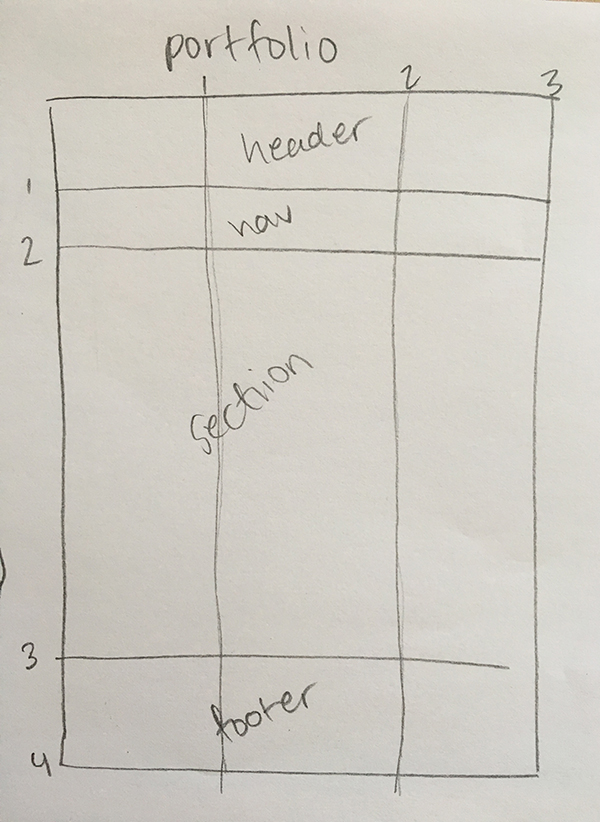 portfolio
1 2 3
header
1
nav
2
section
3
footer
4